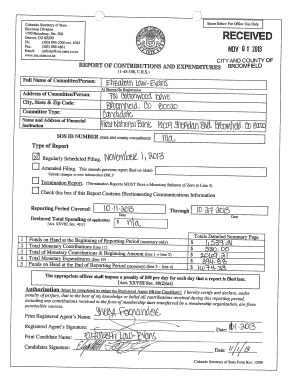 Colorado Secretary of State
Elections Division
1700 Broadway, Ste. 200
Denver, CO 80290
Space Below For Office Use Only
RECEIVED
NOV 01 2013
CITY AND COUNTY OF
BROOMFIELD
REPORT OF CONTRIBUTIONS AND EXPENDITURES
(1-45-108, C.R.S.)
Full Name of Committee/Person: Elizabeth Law-Evans
As Shown On Registration
Address of Committee/Person: Cottonwood Drive
City, State & Zip Code: Broomfield, CO 80020
Committee Type: Candidate
Name and Address of Financial Institution First National Bank, Sheridan Blvd. Broomfield, CO 80020
SOS ID NUMBER (state and county committees): n/a
Type of Report
Regularly Scheduled Filing. November 1, 2013
Amended Filing. This amends previous report filed on (date)
Submit changes or new information ONLY
Termination Report. (Termination Reports MUST Have a Monetary Balance of Zero in Line 5)
Check this box if this Report Contains Electioneering Communications Information
Reporting Period Covered: 10-11-2013 Through 10-27-2013
Date Date
Declared Total Spending (if applicable) $ n/a
(Art. XXVIII, Sec. 4(1))
Totals Detailed Summary Page
1 Funds on Hand at the Beginning of Reporting Period (monetary only) $
2 Total Monetary Contributions (line 11) $
3 Total of Monetary Contributions & Beginning Amount (line 1 + line 2) $
4 Total Monetary Expenditures (line 19) $
5 Funds on Hand at the End of Reporting Period (monetary) (line 3 – line 4) $
The appropriate officer shall impose a penalty of $50 per day for each day that a report is filed late.
(Art. XXVIII Sec. 10(2)(a))
Authorization (Must be completed by either the Registered Agent OR the Candidate): I hereby certify and declare, under
penalty of perjury, that to the best of my knowledge or belief all contributions received during this reporting period,
including any contributions received in the form of membership dues transferred by a membership organization, are from
permissible sources.
Print Registered Agent's Name: Sheryl Fernandez
Registered Agent's Signature: Date:
Print Candidate Name: Elizabeth Law-Evans
Candidate Signature: Date: 11/1/13
Colorado Secretary of State Form